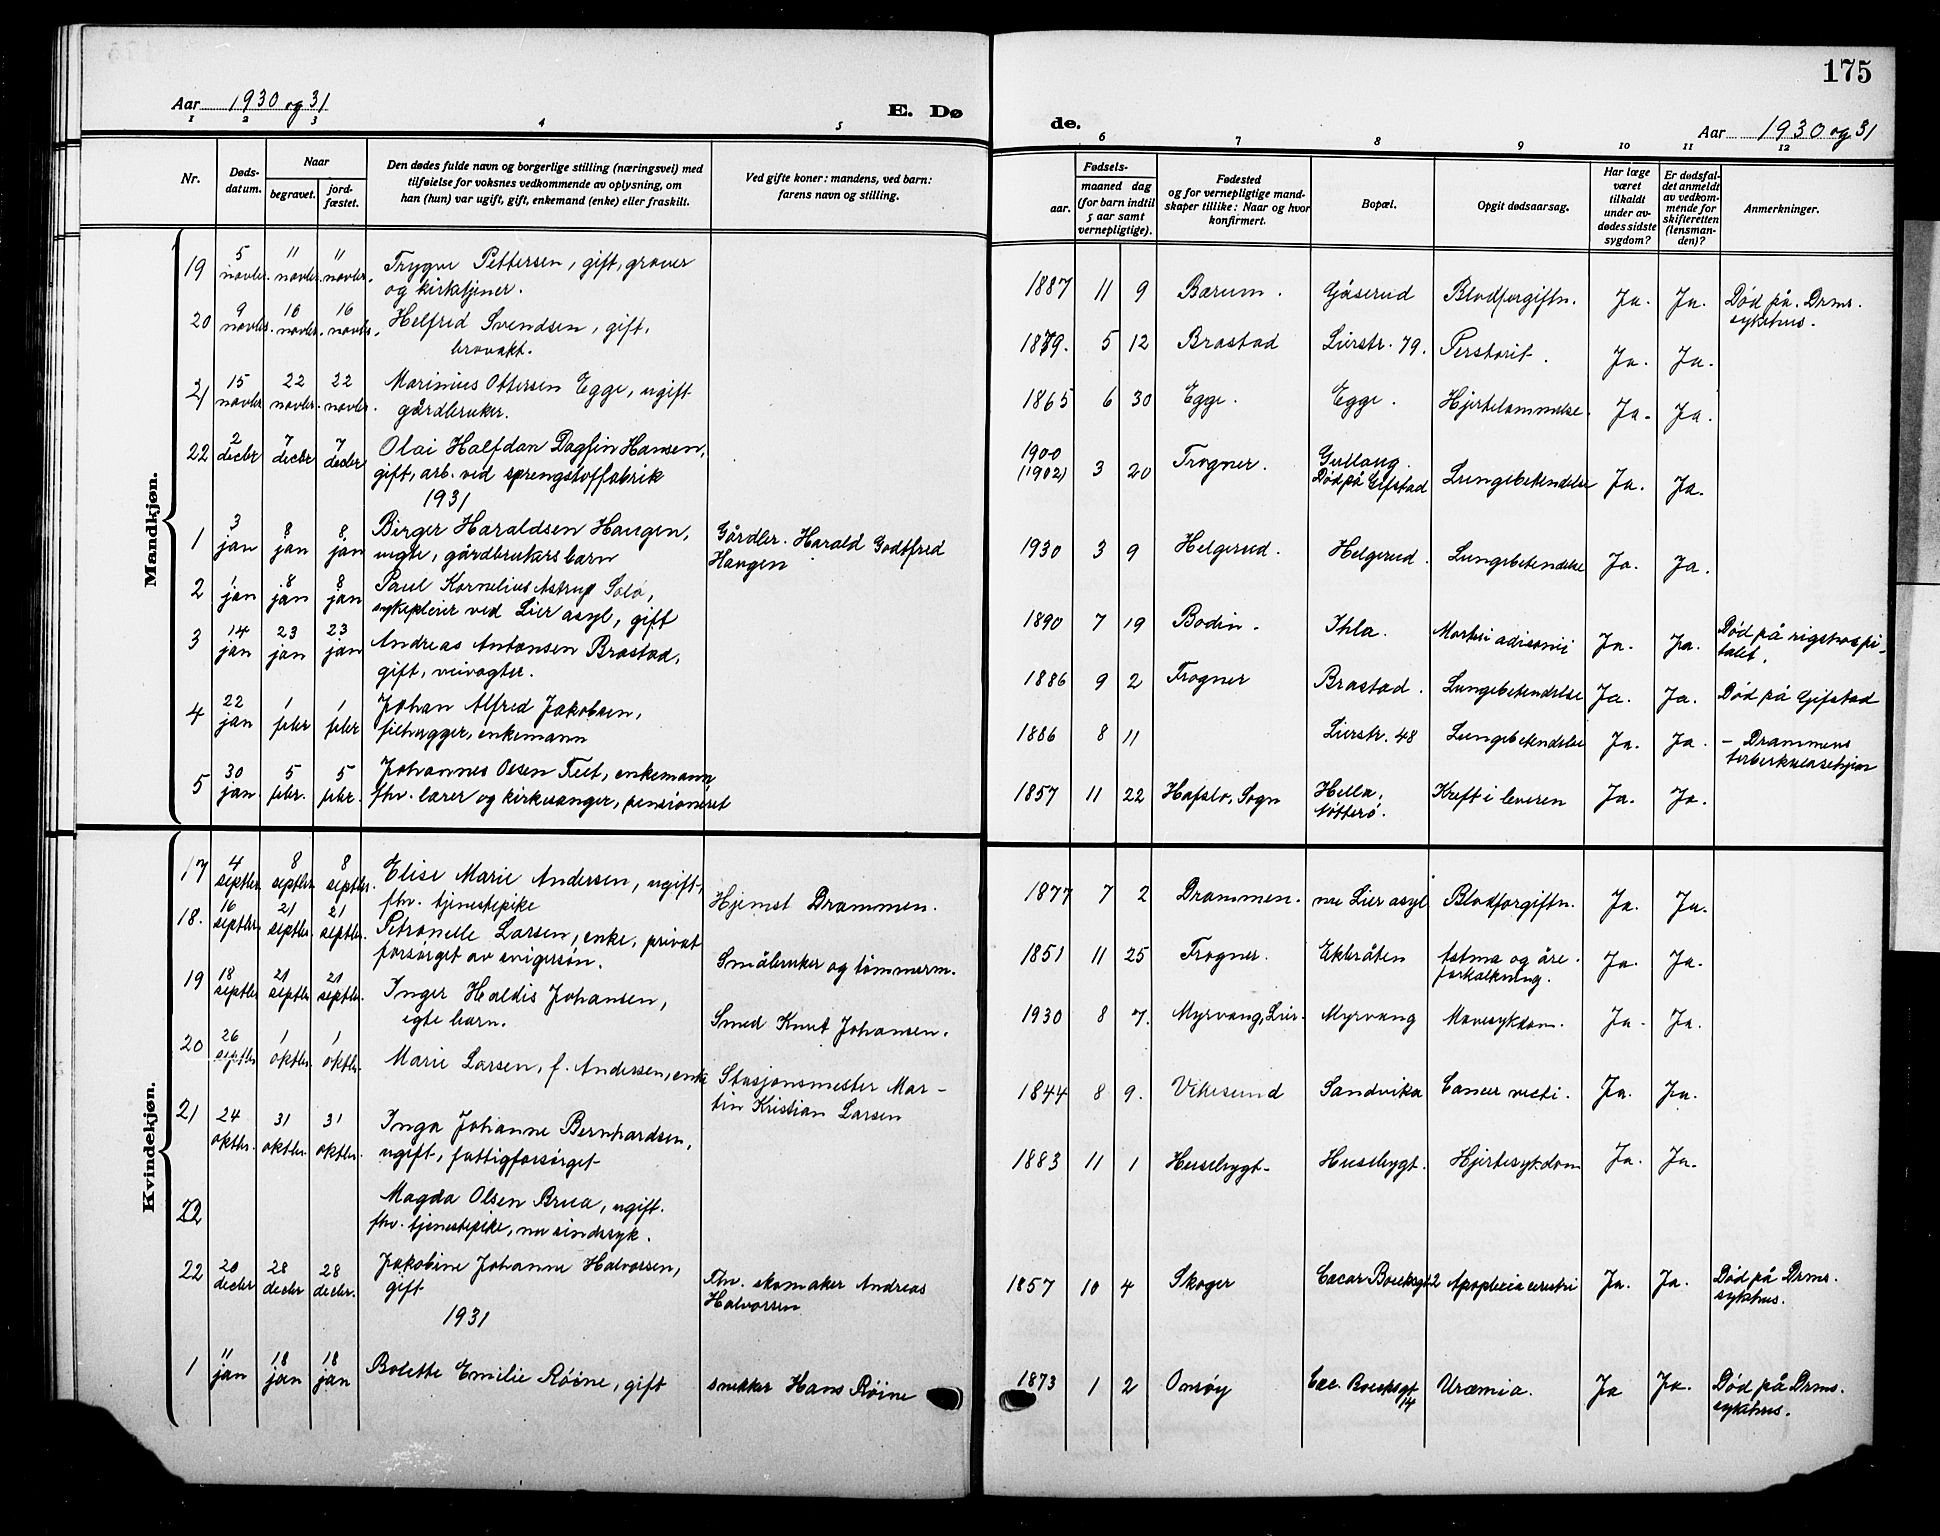 175
Aar 1930 og 31
E. Dø
de.
Aar 1930 og 31
1 2 3 4 5 6 7 8 9 10 11 12
Nr.
Døds-
datum.
Naar
begravet.
jord-
fæstet.
Den dødes fulde navn og borgerlige stilling (næringsvei) med
tilføielse for voksnes vedkommende av oplysning, om
han (hun) var ugift, gift, enkemand (enke) eller fraskilt.
Ved gifte koner: mandens, ved barn:
farens navn og stilling.
Fødsels-
aar.
maaned dag
(for barn indtil
5 aar samt
vernepligtige).
Fødested
og for vernepligtige mand-
skaper tillike: Naar og hvor
konfirmert.
Bopæl.
Opgit dødsaarsag.
Har læge
været
tilkaldt
under av-
dødes sidste
sygdom?
Er dødsfal-
det anmeldt
av vedkom-
mende for
skifteretten
(lensman-
den)?
Anmerkninger.
Mandkjøn.
19 5 novbr. 11 novbr. 11 novbr. Trygve Pettersen, gift, graver
og kirketjener.
1887 11 9 Bærum. Gåserud Blodforgiftn. Ja. Ja. Død på Drms.
sykehus.
20 9 novbr. 16 novbr. 16 novbr. Helfred Svendsen, gift,
brovakt.
1879. 5 12 Brastad Lierstr. 79. Ja. Ja.
21 15 novbr 22 novbr. 22 novbr. Marinius Ottersen Egge, ugift
gårdbruker.
1865 6 30 Egge. Egge. Hjertelammelse. Ja. Ja.
22 2 decbr 7 decbr 7 decbr Olai Halfdan Dagfin Hansen,
gift, arb. ved sprengstoffabrik
1900
(1902) 3 20 Frogner. Gullaug.
Død på Gifstad Lungebetendelse Ja. Ja.
1931
1 3 jan 8 jan 8. jan Birger Haraldsen Haugen,
egte, gårdbrukers barn
Gårdbr. Harald Godtfred
Haugen
1930 3 9 Helgerud. Helgerud. Lungebetendelse Ja. Ja.
2 1 jan 8 jan 8 jan Paul Kornelius Astrup Solø,
sykepleier ved Lier asyl, gift
1890 7 19 Bodin. Ihla. Morbus adisonii Ja. Ja. Død på rigshospi-
talet.
3 14 jan 23 jan 23 jan Andreas Antonsen Brastad,
gift, veivogter.
1886 9 2 Frogner Brastad. Lungebetendelse Ja. Ja. Død på Gifstad
4 22 jan 1 febr 1 febr Johan Alfred Jakobsen,
filhugger, enkemann
1886 8 11 Lierstr. 48 Lungebetendelse Ja. Ja. – Drammens
tuberkulosehjem
5 30 jan. 5 febr. 5 febr. Johannes Olsen Feet, enkemann
fhv. lærer og kirkesanger, pensioneret
1857 11 22 Hafslo, Sogn Hella,
Nøtterø. Kreft i leveren Ja. Ja.
Kvindekjøn.
17 4 septbr. 8 septbr 8 septbr. Elise Marie Andersen, ugift,
fhv. tjenestepike
Hjemst Drammen.
1877 7 2 Drammen. nu Lier asyl Blodforgiftn. Ja. Ja.
18. 16 septbr. 21 septbr. 21 septbr. Petronelle Larsen, enke, privat
forsørget av svigersøn.
Småbruker og tømmerm.
1851 11 25 Frogner. Eklråten Astma og åre-
forkalkning. Ja. Ja.
19 18 septbr 21 septbr 21 septbr. Inger Haldis Johansen,
egte barn.
Smed Knut Johansen.
1930 8 7. Myrvang, Lier. Myrvang Mavesykdom. Ja. Ja.
20 26 septbr 1 oktbr. 1 oktbr. Marie Larsen, f. Andersen, enke
Stasjonsmester Mar-
tin Kristian Larsen
1844 8 9. Vikesund Sandvika Cancer recti. Ja. Ja.
21 24 oktbr. 31 oktbr. 31 oktbr. Inga Johanne Bernhardsen,
ugift, fattigforsørget
1883 11 1 Husebygt. Husebygt. Hjertesykdom Ja. Ja.
22 Magda Olsen Brua, ugift.
fhv. tjenestepike, nu sindssyk.
22 20 decbr 28 decbr 28 decbr. Jakobine Johanne Halvorsen,
gift
Fhv. skomaker Andreas
Halvorsen
1857 10 4 Skoger Apoplexia cerebri Ja. Ja. Død på Drms.
sykehus.
1931
1 11 jan 18 jan 18 jan Bolette Emilie Røine, gift
snekker Hans Røine
1873 1 2 Onsøy 14 Uræmia. Ja Ja. Død på Drms.
sykehus.